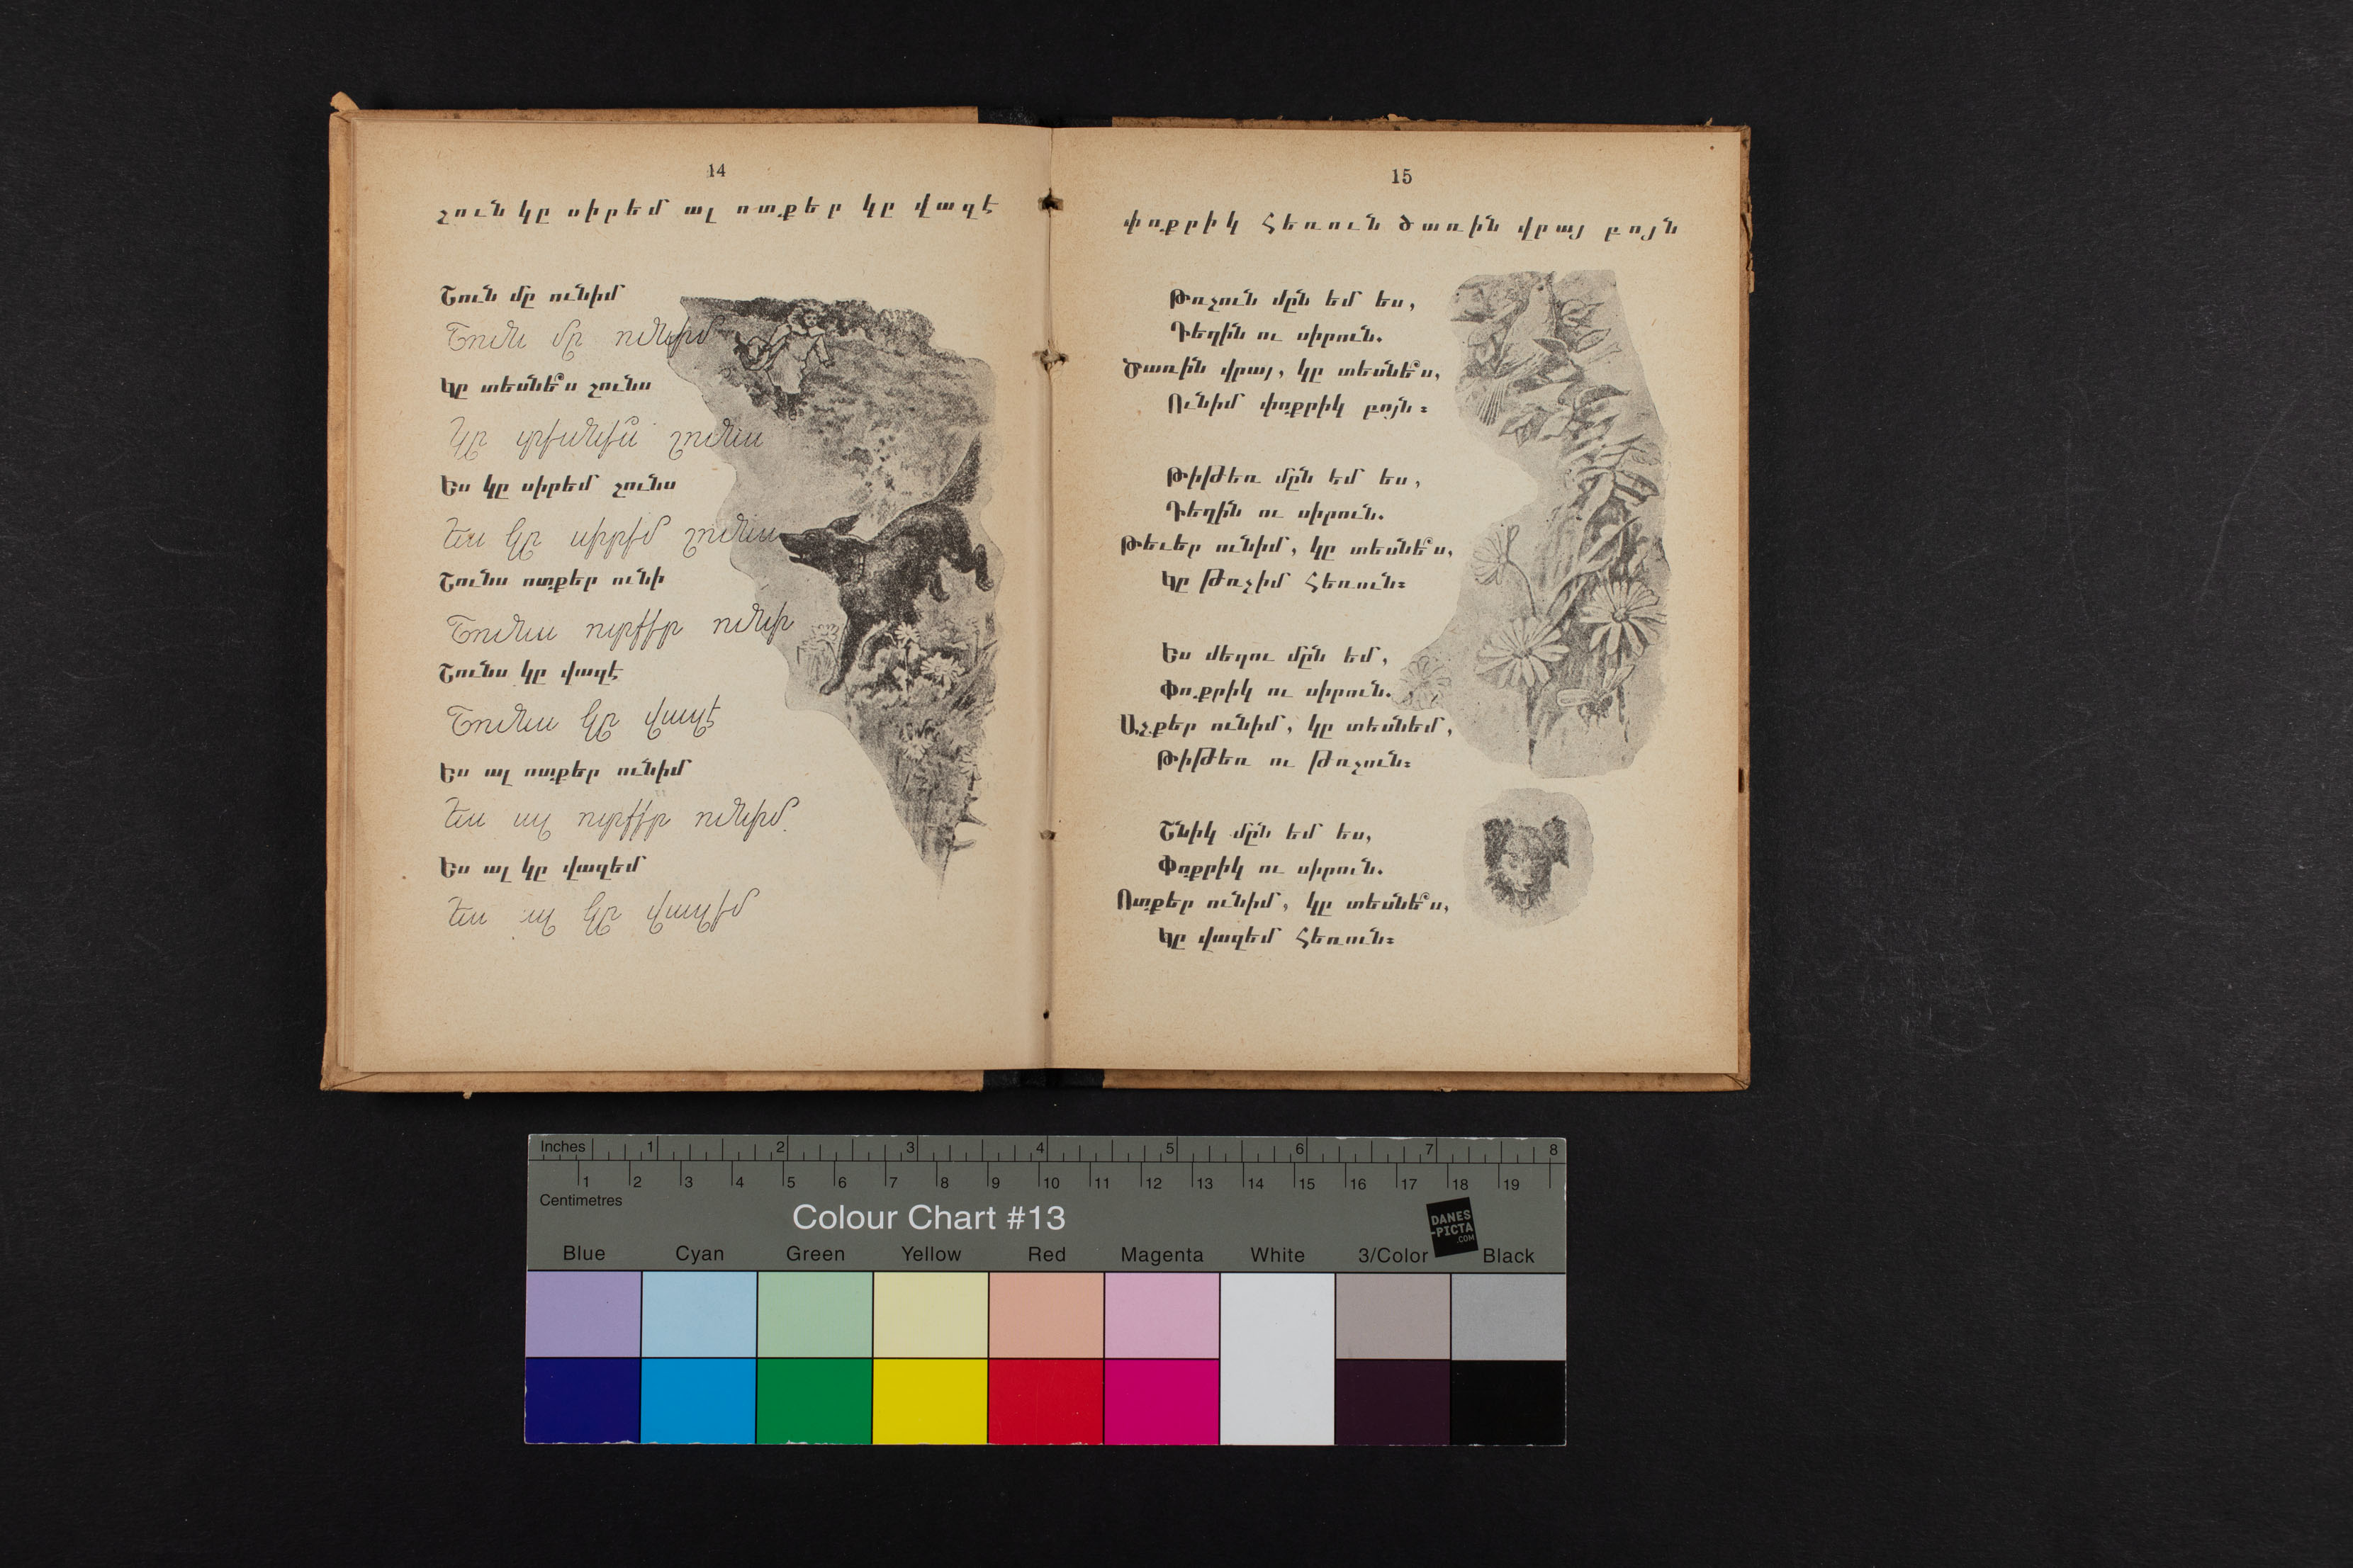 14
շուն կը սիրեմ ալ ոտքեր կը վազէ
Շուն մը ունիմ
Շուն մը ունիմ
Կը տեսնե՞ս շունս
Կը տեսնե՞ս շունս
Ես կը սիրեմ շունս
Ես կը սիրեմ շունս
Շունս ոտքեր ունի
Շունս ոտքեր ունի
Շունս կը վազէ
Շունս կը վազէ
Ես ալ ոտքեր ունիմ
Ես ալ ոտքեր ունիմ
Ես ալ կը վազեմ
Ես ալ կը վազեմ
15
փոքրիկ հեռուն ծառին վրայ բոյն
Թռչուն մըն եմ ես,
Դեղին ու սիրուն.
Ծառին վրայ, կը տեսնե՞ս,
Ունիմ փոքրիկ բոյն։
Թիթեռ մըն եմ ես,
Դեղին ու սիրուն.
Թեւեր ունիմ, կը տեսնե՞ս,
Կը թռչիմ հեռուն։
Ես մեղու մըն եմ,
Փոքրիկ ու սիրուն.
Աչքեր ունիմ, կը տեսնեմ,
Թիթեռ ու թռչուն։
Շնիկ մըն եմ ես,
Փոքրիկ ու սիրուն.
Ոտքեր ունիմ, կը տեսնե՞ս,
Կը վազեմ հեռուն։
Inches 1 2 3 4 5 6 7 8
1 2 3 4 5 6 7 8 9 10 11 12 13 14 15 16 17 18 19
Centimetres
Colour Chart #13
DANES
-PICTA
.COM
Blue Cyan Green Yellow Red Magenta White 3/Color Black